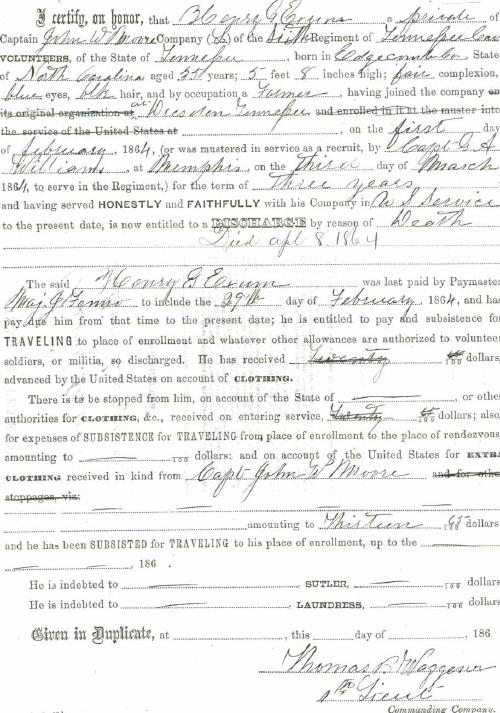 I certify, on honor, that Henry G Exum a private of
Captain John W Moore Company ( ) of the Sixth Regiment of Tennessee Cav
VOLUNTEERS, of the State of Tennessee, born in Edgecomb Co State
of North Carolina aged years; 5 feet 8 inches high; fair complexion,
blue eyes, blk hair, and by occupation a Farmer, having joined the company on
its original organization at at Dresden Tennessee and enrolled in it at the muster into
the service of the United States at , on the first day
of february, 1864, (or was mustered in service as a recruit, by Capt G A
Williams, at Memphis, on the third day of March
1864, to serve in the Regiment,) for the term of three years
and having served HONESTLY and FAITHFULLY with his Company in U S Service
to the present date, is now entitled to a DISCHARGE by reason of Death
Died apl 8. 1864
The said Henry G Exum was last paid by Paymaster
Maj. to include the 29th day of February, 1864, and has
pay due him from that time to the present date; he is entitled to pay and subsistence for
TRAVELING to place of enrollment and whatever other allowances are authorized to volunteer
soldiers, or militia, so discharged. He has received Twenty 100 dollars,
advanced by the United States on account of CLOTHING.
There is to be stopped from him, on account of the State of , or other
authorities for CLOTHING, &c., received on entering service, Twenty dollars; also
for expenses of SUBSISTENCE for TRAVELING from place of enrollment to the place of rendezvous
amounting to 100 dollars: and on account of the United States for EXTRA
CLOTHING received in kind from Capt John W Moore and for other
stoppages, viz:
amounting to Thirteen dollars
and he has been SUBSISTED for TRAVELING to his place of enrollment, up to the
, 186 .
He is indebted to SUTLER, 100 dollars
He is indebted to LAUNDRESS, 100 dollars
Given in Duplicate, at , this day of , 186
Thomas R Waggener
1st Lieut
Commanding Company.